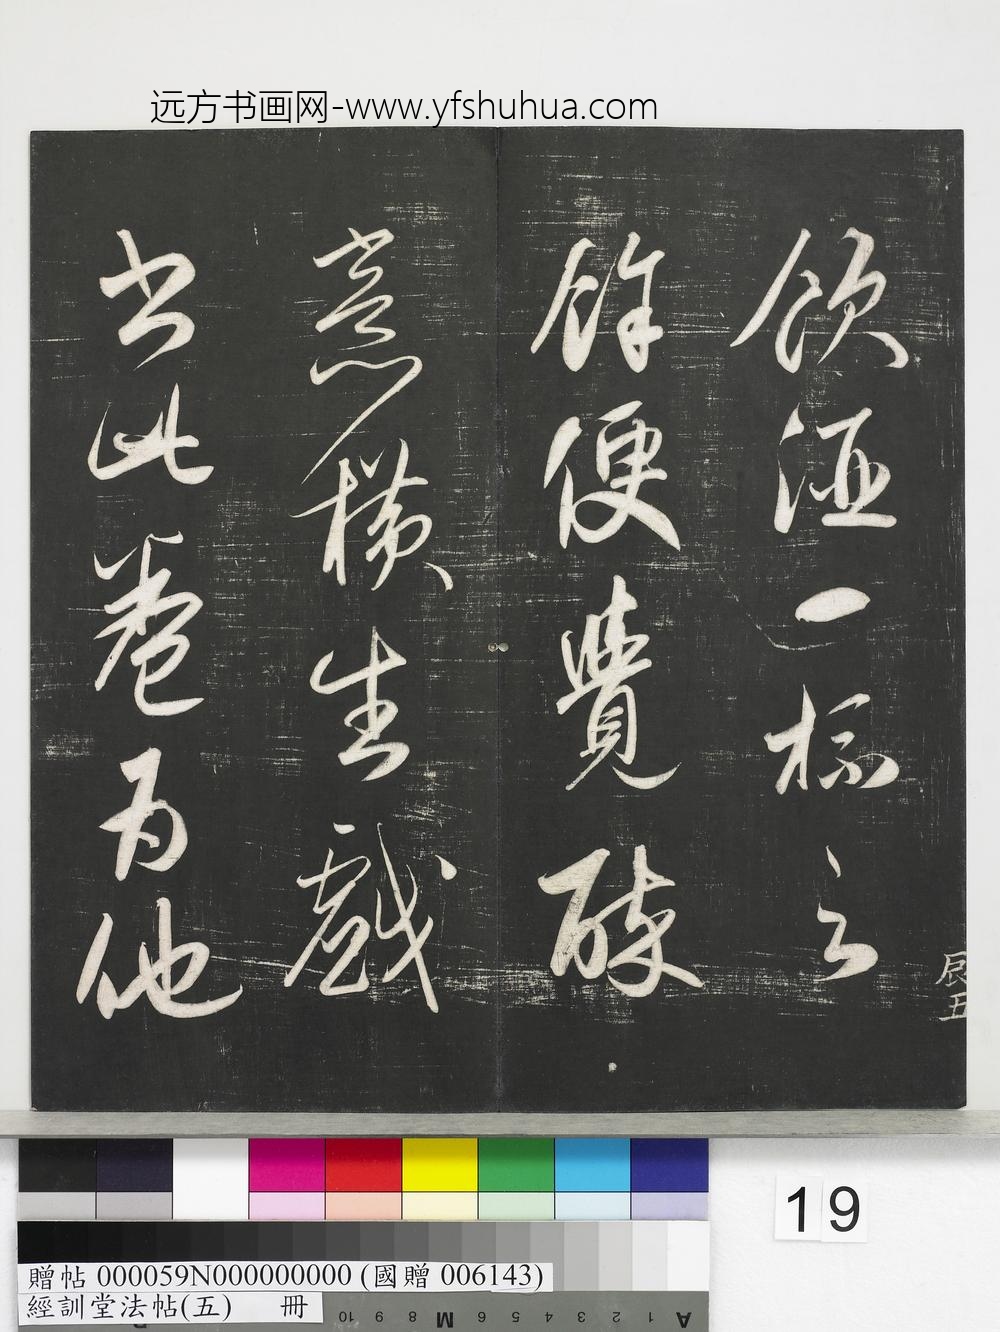 远方书画网-www.yfshuhua.com
飲酒一杯之
餘便覺醉
意橫生戲
書此卷為他
辰五
19
贈帖 000059N000000000 (國贈 006143)
經訓堂法帖(五) 冊
10 9 8 M 6 5 4 3 2 1 A